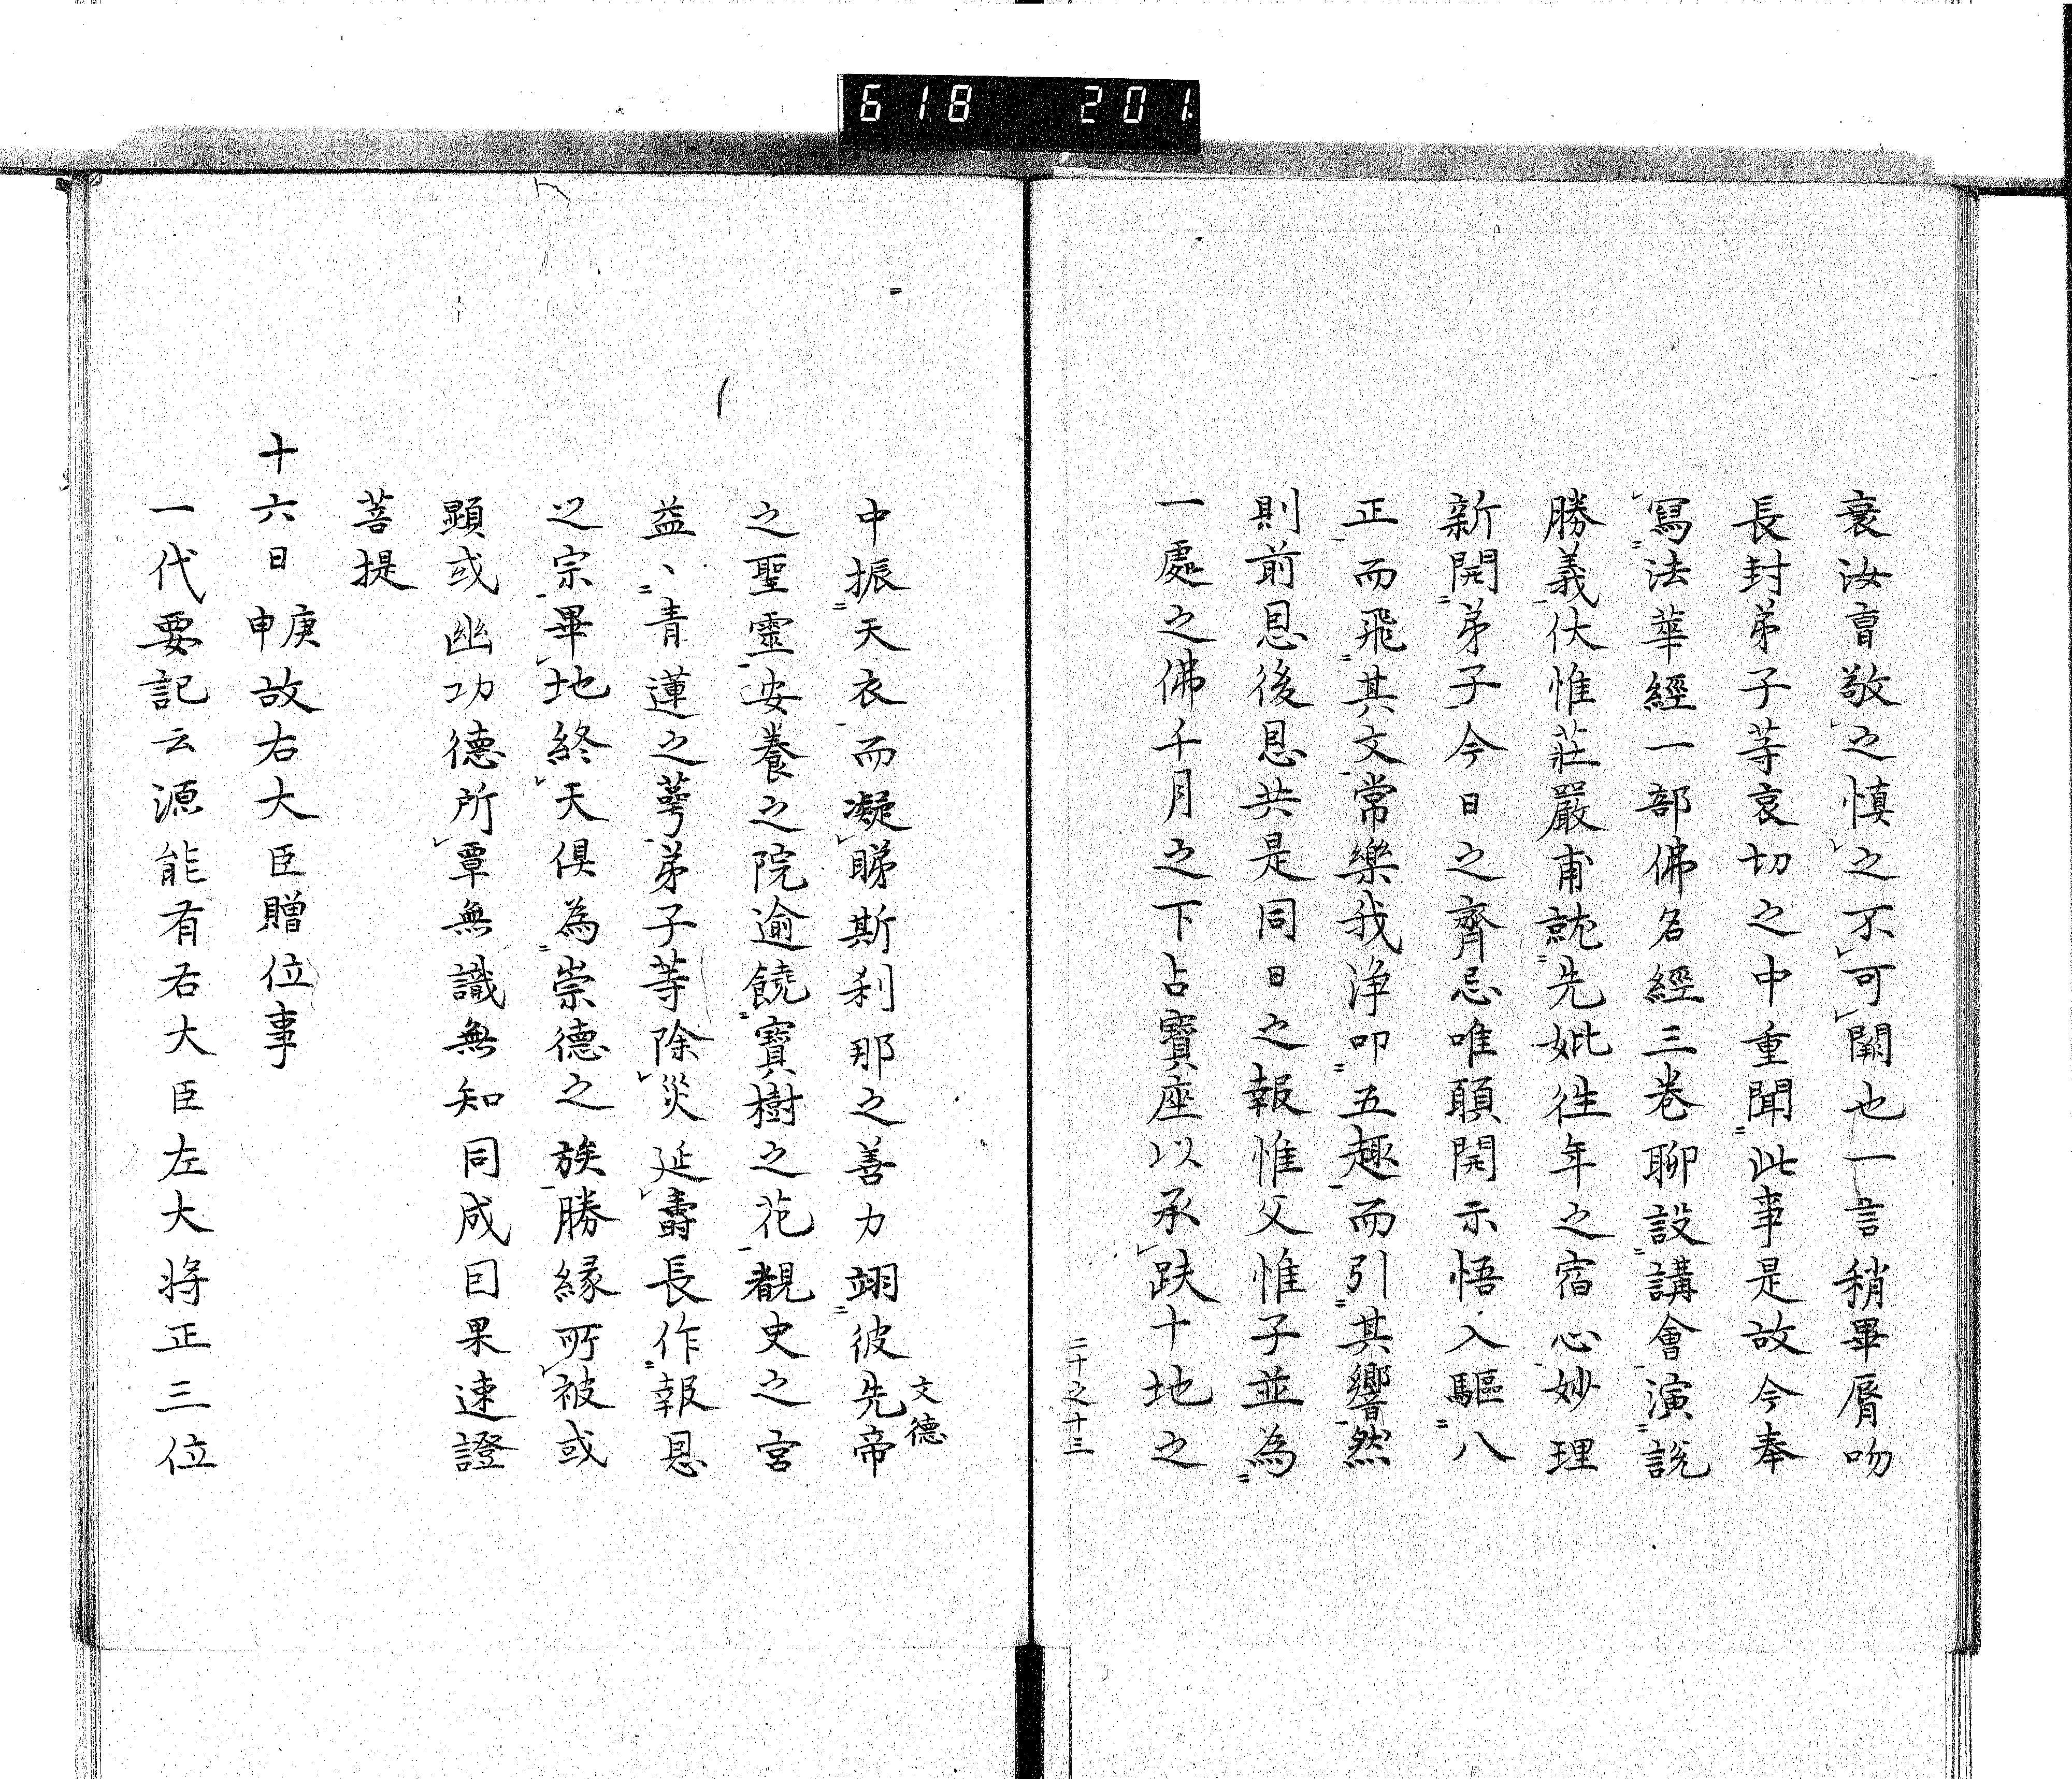 618 201
衰汝曺敬之慎之不可闕也一言稍畢脣吻
長封弟子等哀切之中重聞此事是故今奉
寫法華經一部佛名經三卷聊設講會演說
勝義伏惟莊嚴甫就先妣往年之宿心妙理
新開弟子今日之齊忌唯願開示悟入驅八
正而飛其文常樂我淨叩五趣而引其響然
則前恩後恩共是同日之報惟父惟子並為
一處之佛千月之下占寶座以承趺十地之
二十之十三
中振天衣而凝睇斯刹那之善力翊彼先帝
文德
之聖靈安養之院逾饒寶樹之花覩史之宮
益、青蓮之萼弟子等除災延壽長作報恩
之宗畢地終天俱為崇德之族勝緣所被或
顕或幽功德所覃無識無知同成因果速證
菩提
十六日庚申故右大臣贈位事
一代要記云源能有右大臣左大将正三位